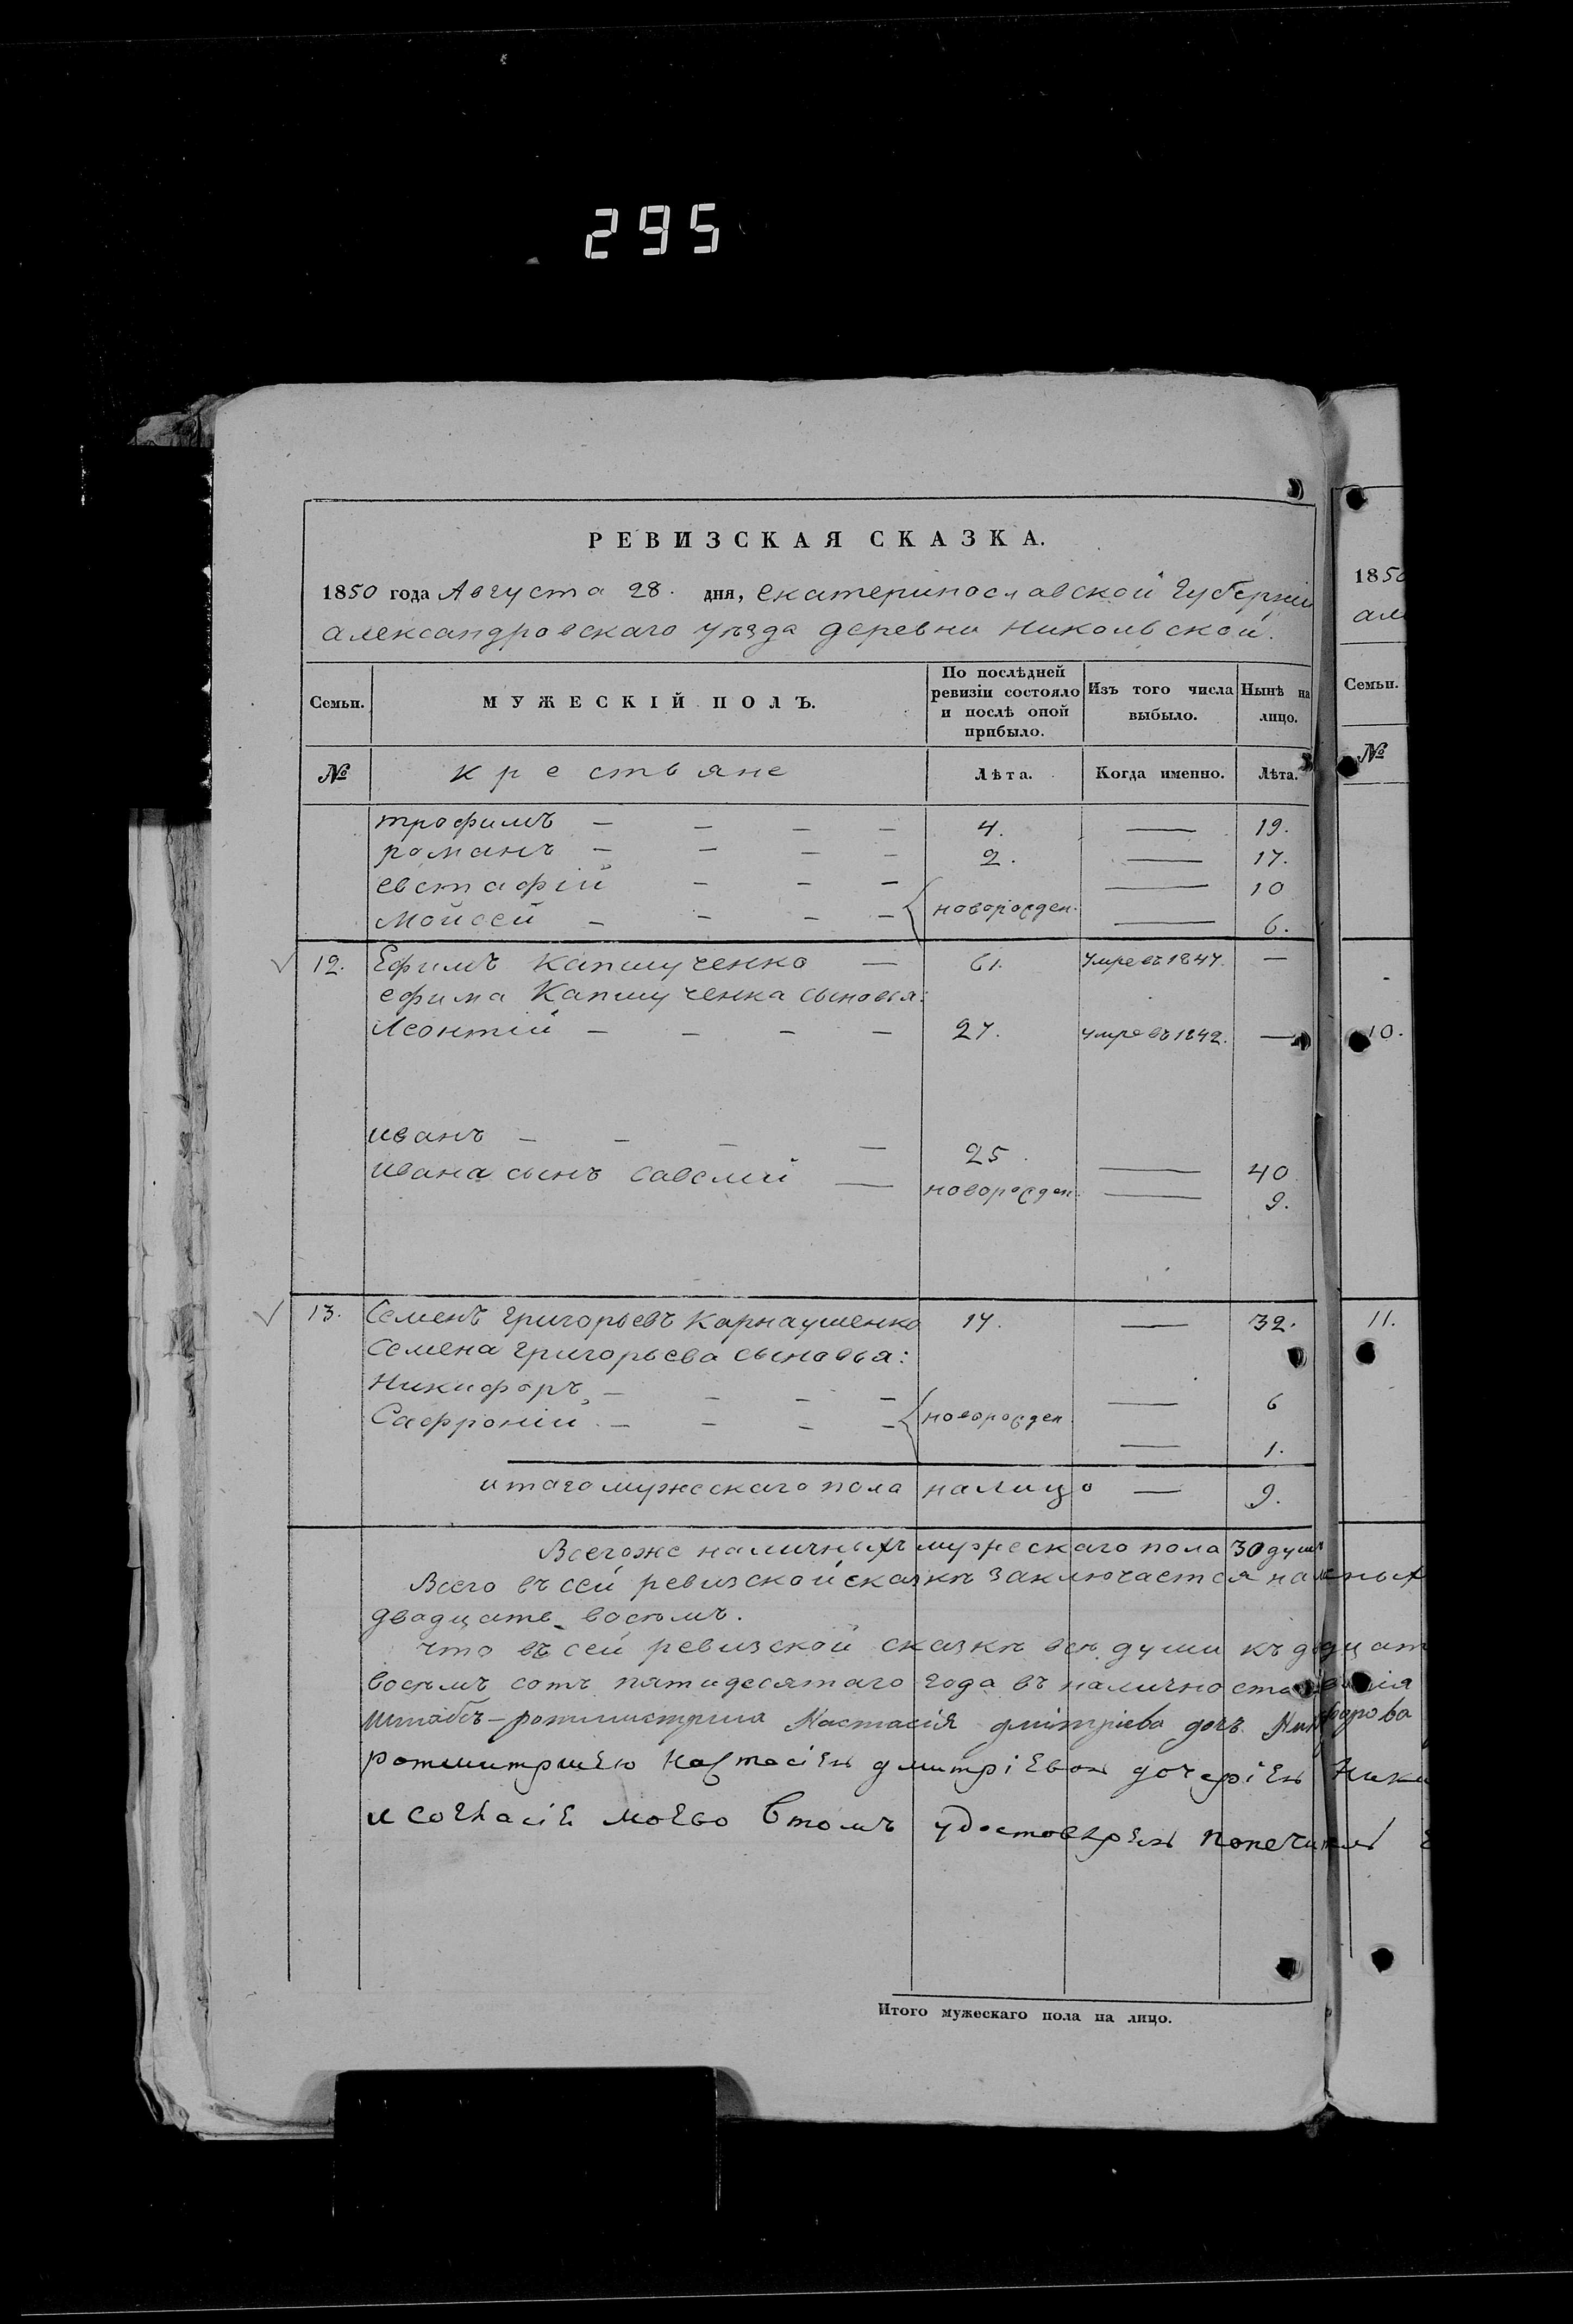 295
РЕВИЗСКАЯ СКАЗКА.
1850 года Августа 28. дня, екатеринославской Губерніи
александровскаго уѣзда деревни Никольской.
Семьи. МУЖЕСКІЙ ПОЛЪ. По послѣдней ревизіи состояло и послѣ оной прибыло. Изъ того числа выбыло. Нынѣ на лицо.
№ крестьяне Лѣта. Когда именно. Лѣта.
трофимъ — — — — 4. — 19.
романъ — — — — 2. — 17.
евстафій — — — — 10
новорожден.
Мойсей — — — — — 6.
12. Ефимъ Капшученко — 61. умре въ 1847. —
ефима Капшученка сыновья:
Леонтій — — — — 27. умре въ 1842. —
иванъ — — — — 25. — 40
ивана сынъ савелій — новорожден. — 9.
13. Семенъ григорьевъ Карнаушенко 17. — 32.
Семена григорьева сыновья:
Никифоръ — — — — — 6
Сафроній — — — — новорожден — 1.
итого мужескаго пола налицо — 9.
Всегоже наличныхъ мужескаго пола 30 душъ
Всего въ сей ревизской сказкѣ заключается
двадцать восѣмъ.
что въ сей ревизской сказкѣ всѣ души къ
восѣмъ сотъ пятидесятаго года въ
Штабъ-ротмистрша Настасія дмітріева дочь
ротмитршею Настасіею дмитріевою дочеріею
и согласіе моево втомъ удостоверяю попечитель
1850
але
Семьи.
№
10.
11.
Итого мужескаго пола на лицо.